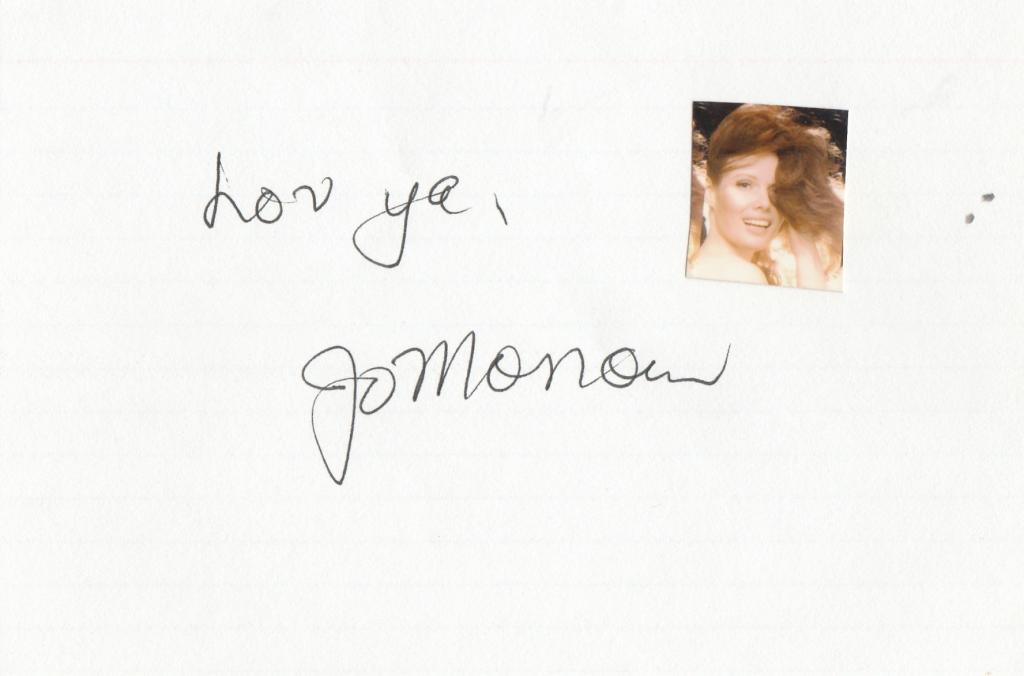 Lov ya,
Jo Morrow